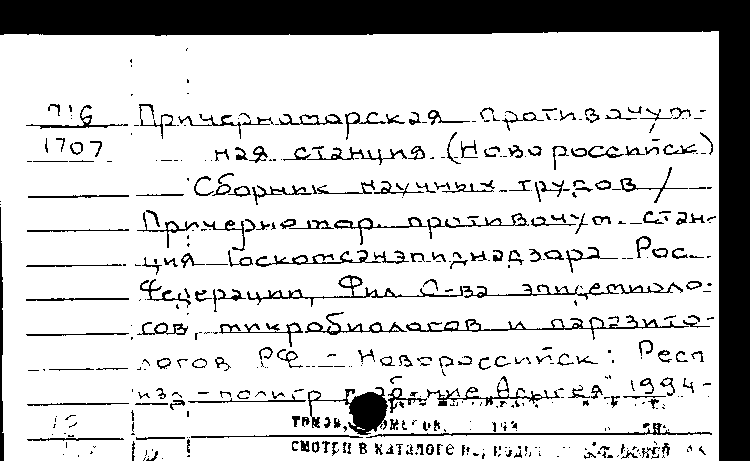 П16
1707
Причерноморская противочум-
ная станция (Новороссийск)
Сборник научных трудов /
Причерномор. противочум. стан-
ция Госкомсанэпиднадзора Рос.
Федерации, Фил. О-ва эпидемиоло-
гов, микробиологов и паразито-
логов РФ - Новороссийск: Респ
изд-полигр "Адыгея" 1994-
смотри в каталоге